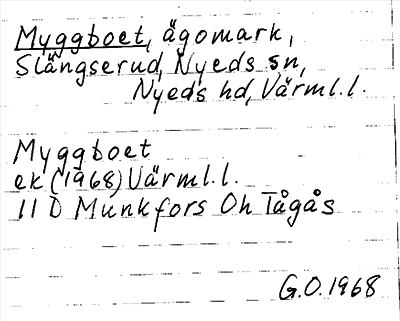 Myggboet, ägomark,
Slängserud, Nyeds sn,
Nyeds hd, Värml.l.
Myggboet
ek (1968) Värml.l.
11 D Munkfors Oh Tågås
G.O. 1968